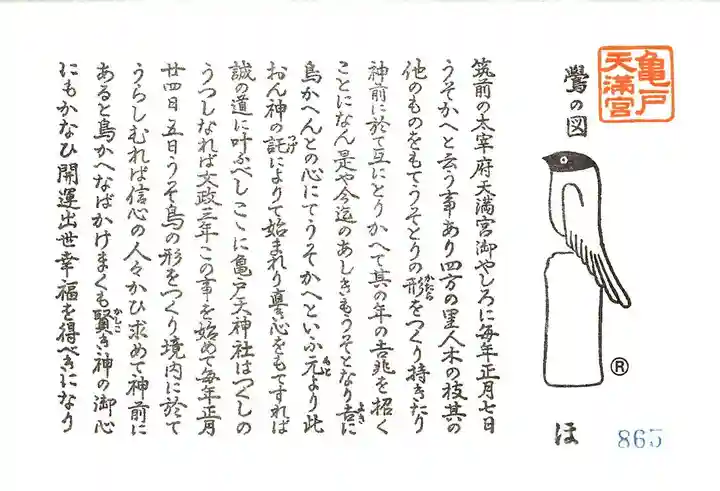 亀戸
天満宮
鷽の図
ほ
865
®
筑前の太宰府天満宮御やしろに毎年正月七日
うそかへと云う事あり四方の里人木の枝其の
他のものをもてうそとりの形をつくり持きたり
神前に於て互にとりかへて其の年の吉兆を招く
ことになん是や今迄のあしきもうそとなり吉に
鳥かへんとの心にてうそかへといふ元より此
おん神の託によりて始まれり真心をもてすれば
誠の道に叶ふべしここに亀戸天神社はつくしの
うつしなれば文政三年この事を始めて毎年正月
廿四日五日うそ鳥の形をつくり境内に於て
うらしむれば信心の人々かひ求めて神前に
あると鳥かへなばかけまくも賢き神の御心
にもかなひ開運出世幸福を得べきになり